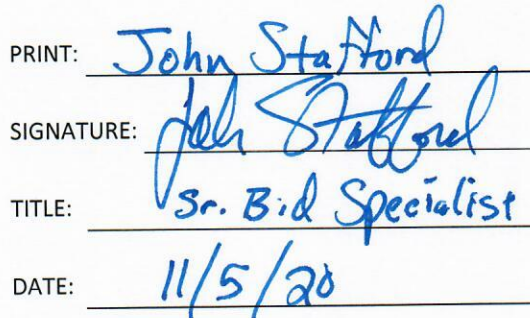 PRINT: John Stafford
SIGNATURE: John Stafford
TITLE: Sr. Bid Specialist
DATE: 11/5/20